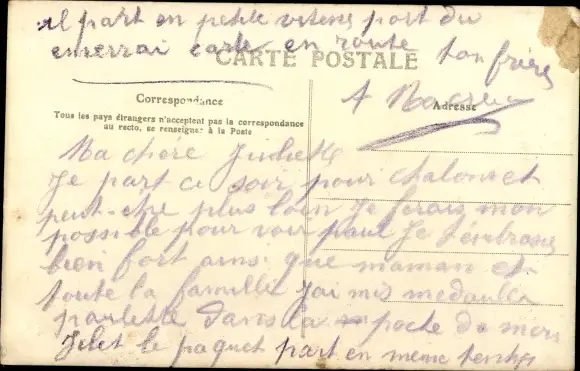 il part en petite vitesse port du
enverrai carte en route ton frère
CARTE POSTALE
A
Correspondance
Adresse
Tous les pays étrangers n'acceptent pas la correspondance
au recto, se renseigner à la Poste
Ma chere Juliette
Je part ce soir pour Chalons et
peut-etre plus loin Je ferais mon
possible pour voir paul Je t'embrasse
bien fort ainsi que maman et
toute la famille J'ai mis medaille
paulette dans la poche de mon
Gilet le paquet part en meme temps